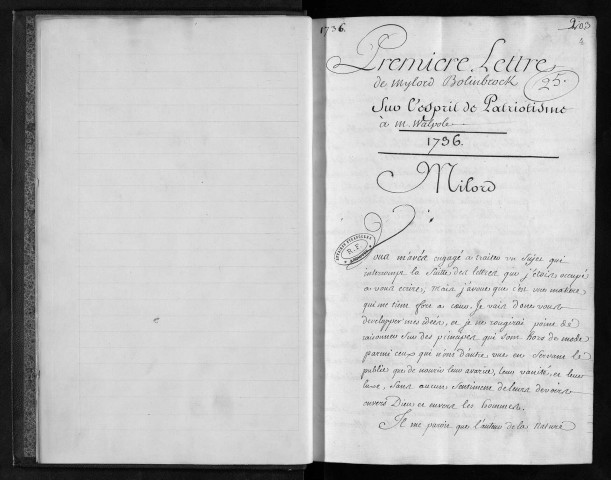 1736.
203
4
Premiere Lettre
de mylord Bolinbrock
25.
Sur l'esprit de Patriotisme
à m. Walpole
1736.
Milord
R.F.
Vous m'avés engagé a traiter un sujet qui
interrompt la suitte des lettres que j'étois occupé
a vous ecrire; mais j'avoue que c'est une matiere
qui me tient fort a coeur. Je vais donc vous
developper mes ideés, et je ne rougirai point de
raisonner sur des principes qui sont hors de mode
parmi ceux qui n'ont d'autre vue en servant le
public que de nourir leur avarice, leur vanité et leur
luxe, sans aucun sentiment de leurs devoirs
envers Dieu et envers les hommes.
Il me paroit que l'auteur de la Nature